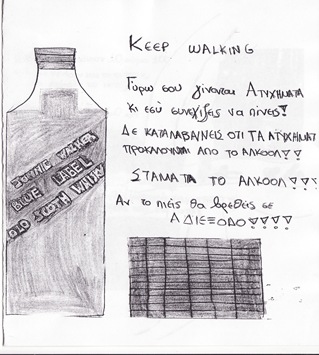 KEEP WALKING
Γύρω σου γίνονται ΑΤΥΧΗΜΑΤΑ
κι εσύ συνεχίζεις να πίνεις!
ΔΕ ΚΑΤΑΛΑΒΑΙΝΕΙΣ ΟΤΙ ΤΑ ΑΤΥΧΗΜΑΤ
ΠΡΟΚΑΛΟΥΝΤΑΙ ΑΠΟ ΤΟ ΑΛΚΟΟΛ!!
ΣΤΑΜΑΤΑ ΤΟ ΑΛΚΟΟΛ!!!
Αν το πιείς θα βρεθείς σε
ΑΔΙΕΞΟΔΟ!!!!
JOHNIE WALKER
BLUE LABEL
SCOTH WHISKY